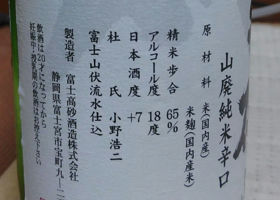 山廃純米辛口
原材料 米(国内産)
米麹(国内産米)
精米歩合 65%
アルコール度 18度
日本酒度 +7
杜氏 小野浩二
富士山伏流水仕込
製造者 富士高砂酒造株式会社
静岡県富士宮市宝町九ー二
飲酒は20才になってから
妊娠中・授乳期の飲酒はお控え下さい